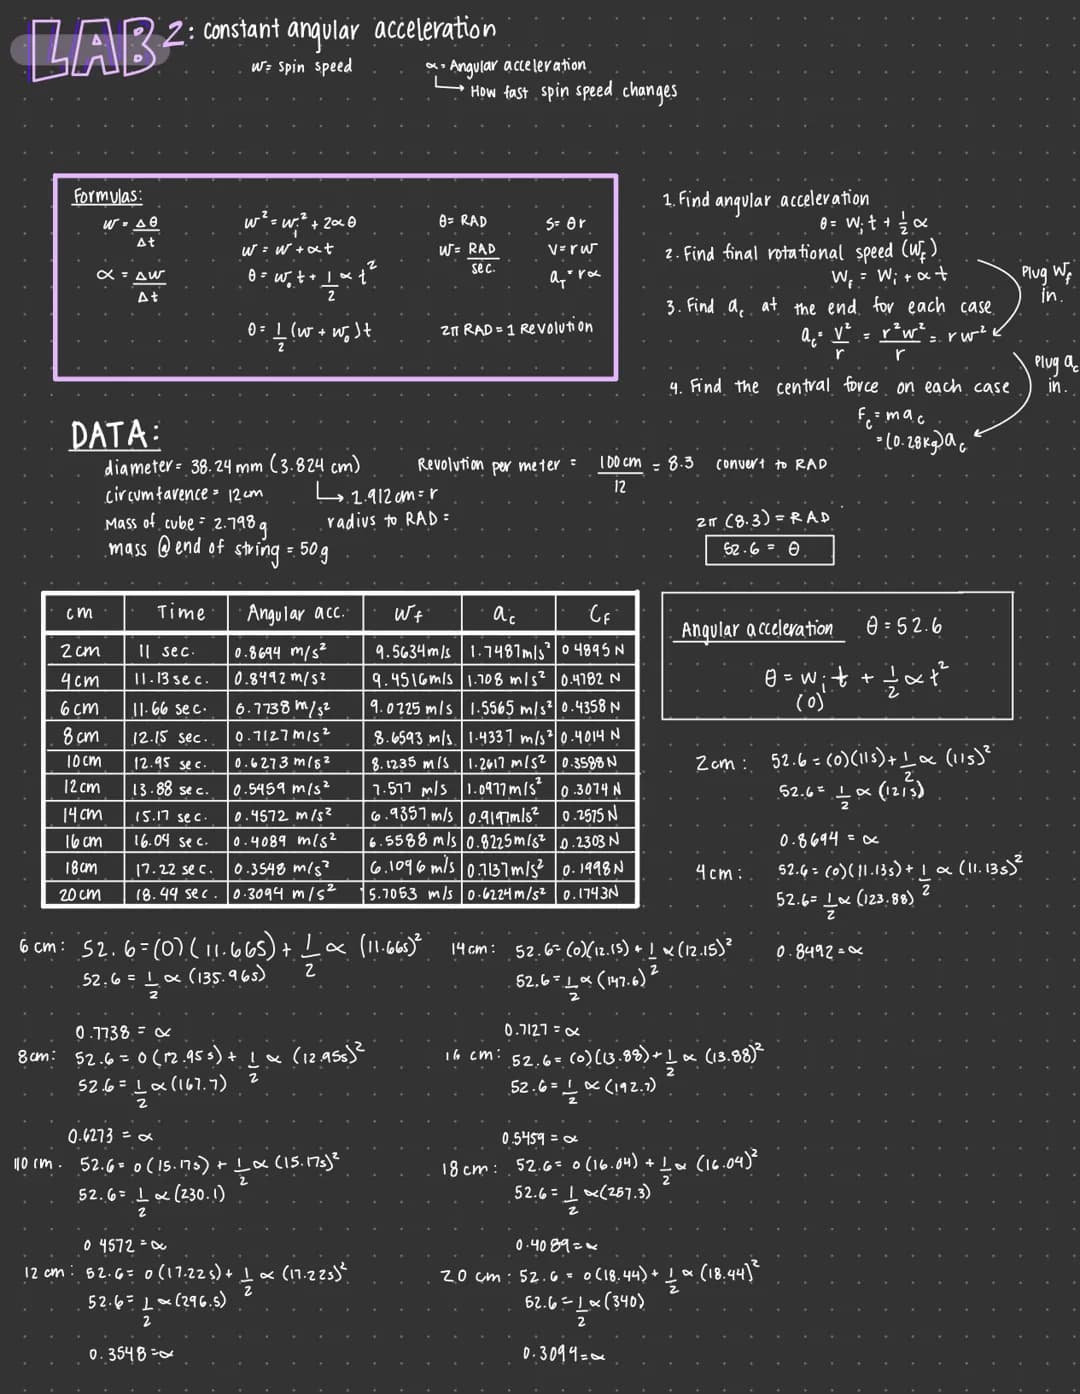 LAB 2: constant angular acceleration
w= spin speed
α = Angular acceleration
↳ How fast spin speed changes
Formulas:
w = Δθ/Δt
w² = wᵢ² + 2αθ
θ = RAD
S = θr
w = w + αt
W = RAD/sec.
V = rw
α = Δw/Δt
θ = w₀t + 1/2 αt²
a_T = rα
θ = 1/2 (w + w₀)t
2π RAD = 1 Revolution
1. Find angular acceleration
θ = Wᵢt + 1/2 α
2. Find final rotational speed (W_f)
W_f = Wᵢ + αt
Plug W_f in.
3. Find a_c at the end for each case
a_c = V²/r = r²w²/r = rw²
Plug a_c in.
4. Find the central force on each case
F_c = ma_c
= (0.28kg)a_c
DATA:
diameter = 38.24 mm (3.824 cm)
circumfarence = 12cm
↳ 1.912cm = r
Mass of cube = 2.798g
radius to RAD =
mass @ end of string = 50g
Revolution per meter = 100cm/12 = 8.3 convert to RAD
2π (8.3) = RAD
52.6 = θ
cm Time Angular acc. Wf a_c C_F
2cm 11 sec. 0.8694 m/s² 9.5634m/s 1.7487m/s² 0.4895 N
4cm 11.13 sec. 0.8492 m/s² 9.4516m/s 1.708 m/s² 0.4782 N
6cm 11.66 sec. 0.7738 m/s² 9.0225 m/s 1.5565 m/s² 0.4358 N
8cm 12.15 sec. 0.7127 m/s² 8.6593 m/s 1.4337 m/s² 0.4014 N
10cm 12.95 sec. 0.6273 m/s² 8.1235 m/s 1.2617 m/s² 0.3588 N
12cm 13.88 sec. 0.5459 m/s² 7.577 m/s 1.0977m/s² 0.3074 N
14cm 15.17 sec. 0.4572 m/s² 6.9357 m/s 0.9197m/s² 0.2575 N
16cm 16.04 sec. 0.4089 m/s² 6.5588 m/s 0.8225m/s² 0.2303 N
18cm 17.22 sec. 0.3548 m/s² 6.1096 m/s 0.7137m/s² 0.1998 N
20cm 18.44 sec. 0.3094 m/s² 5.7053 m/s 0.6224m/s² 0.1743N
Angular acceleration θ = 52.6
θ = wᵢt + 1/2 αt²
(0)
2cm: 52.6 = (0)(11s) + 1/2 α (11s)²
52.6 = 1/2 α (121s)
0.8694 = α
4cm: 52.6 = (0)(11.13s) + 1/2 α (11.13s)²
52.6 = 1/2 α (123.88)
0.8492 = α
6 cm: 52.6 = (0)(11.66s) + 1/2 α (11.66s)²
52.6 = 1/2 α (135.96s)
0.7738 = α
8cm: 52.6 = 0 (12.95s) + 1/2 α (12.95s)²
52.6 = 1/2 α (167.7)
0.6273 = α
110 cm. 52.6 = 0 (15.17s) + 1/2 α (15.17s)²
52.6 = 1/2 α (230.1)
0.4572 = α
12 cm: 52.6 = 0 (17.22s) + 1/2 α (17.22s)²
52.6 = 1/2 α (296.5)
0.3548 = α
14cm: 52.6 = (0)(12.15) + 1/2 α (12.15)²
52.6 = 1/2 α (147.6)
0.7127 = α
16 cm: 52.6 = (0)(13.88) + 1/2 α (13.88)²
52.6 = 1/2 α (192.7)
0.5459 = α
18 cm: 52.6 = 0 (16.04) + 1/2 α (16.04)²
52.6 = 1/2 α (257.3)
0.4089 = α
20 cm: 52.6 = 0 (18.44) + 1/2 α (18.44)²
52.6 = 1/2 α (340)
0.3094 = α